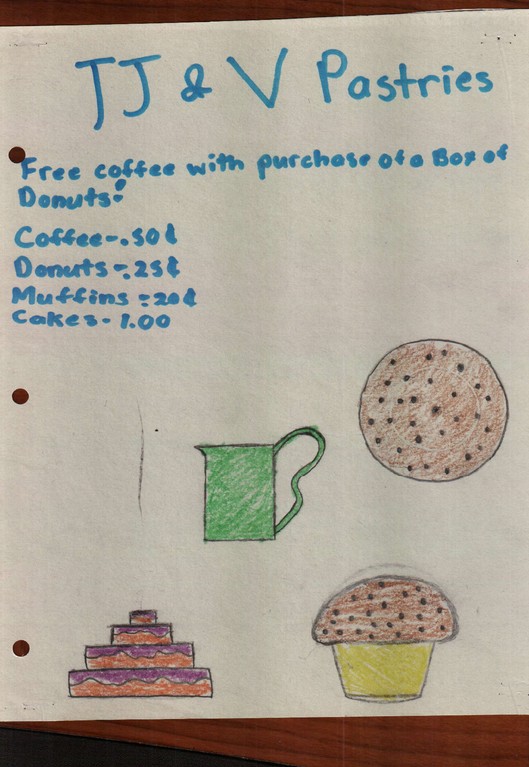 TJ & V Pastries
Free coffee with purchase of a Box of
Donuts!
Coffee-.50¢
Donuts-.25¢
Muffins-.20¢
Cakes-1.00